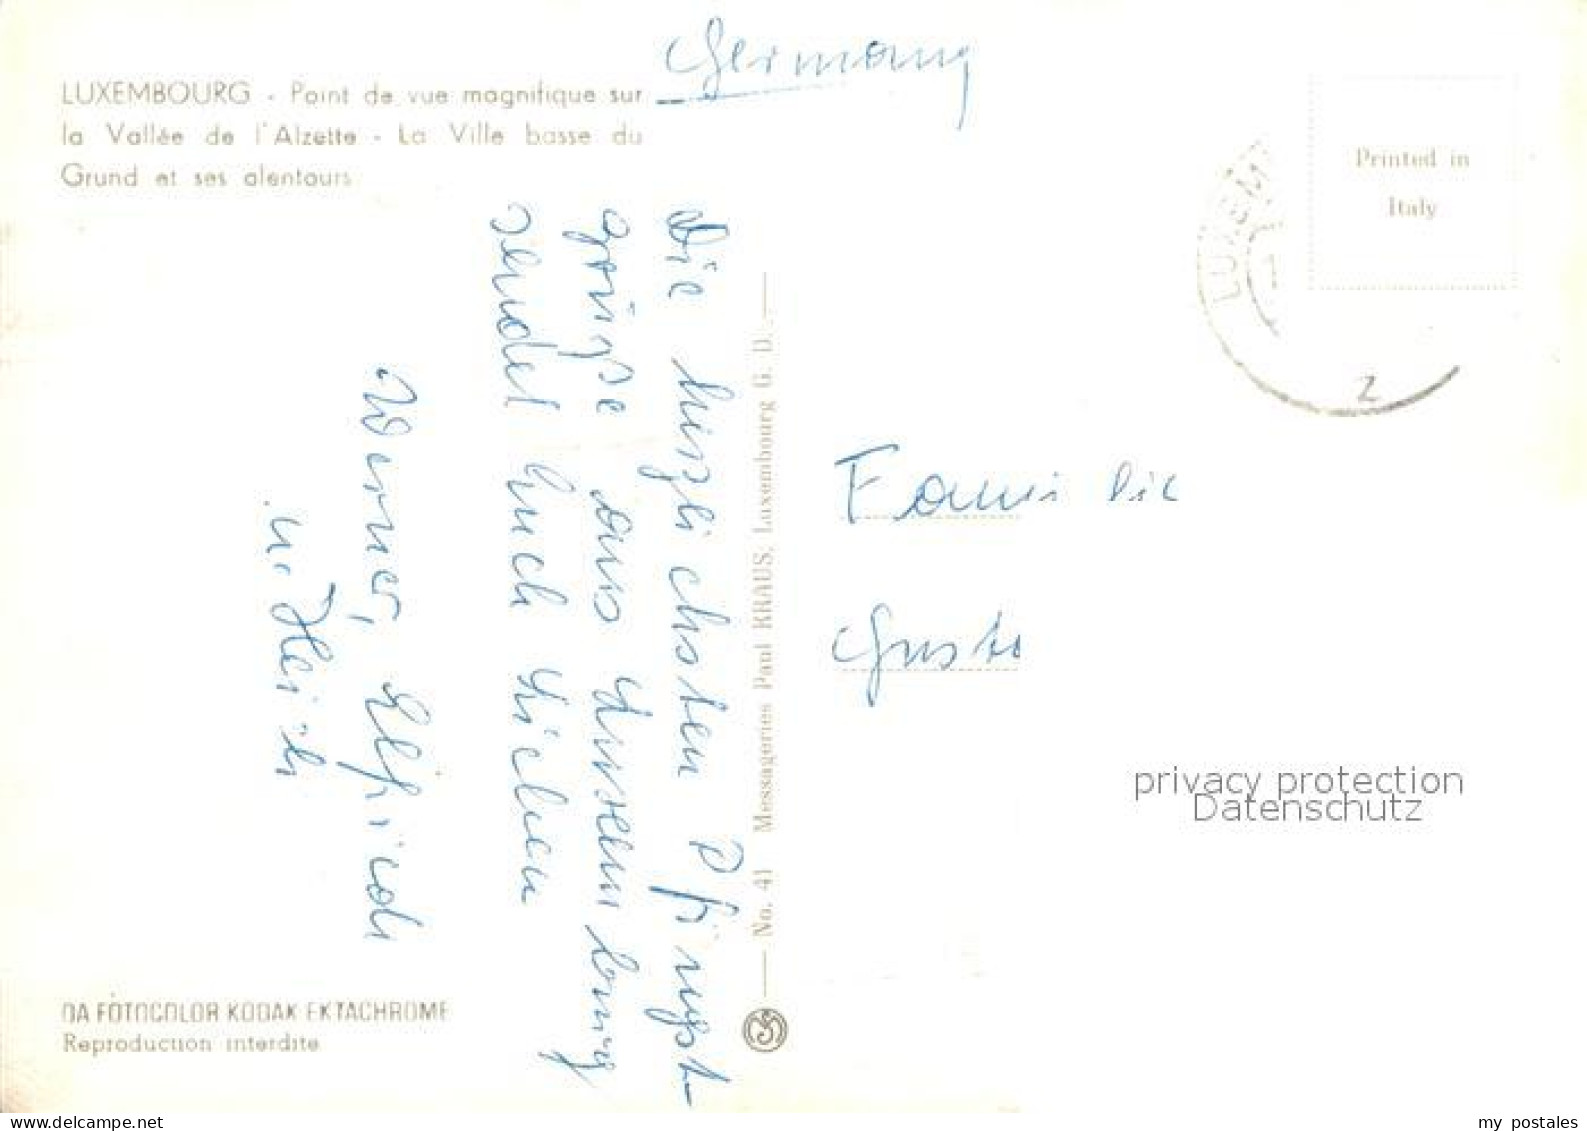 Germany
LUXEMBOURG - Point de vue magnifique sur
la Vallée de l'Alzette - La Ville basse du
Grund et ses alentours
Printed in
Italy
LUXEM
2
Die herzlichsten Pfingst-
grüße aus Luxemburg
sendet Euch Lieben
Werner, Elfriede
u.
No. 41 Messageries Paul KRAUS, Luxembourg G. D.
Familie
Gust
privacy protection
Datenschutz
DA FOTOCOLOR KODAK EKTACHROME
Reproduction interdite
my postales